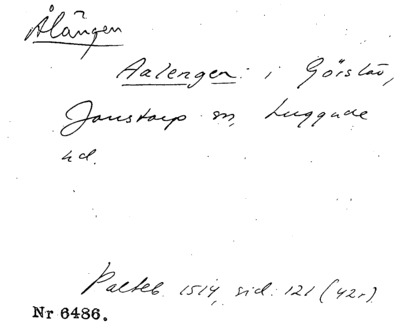 Ålången
Aalengen i Görslöv,
Jonstorp sn, Luggude
hd.
Palteb. 1514, sid. 121 (42r)
Nr 6486.